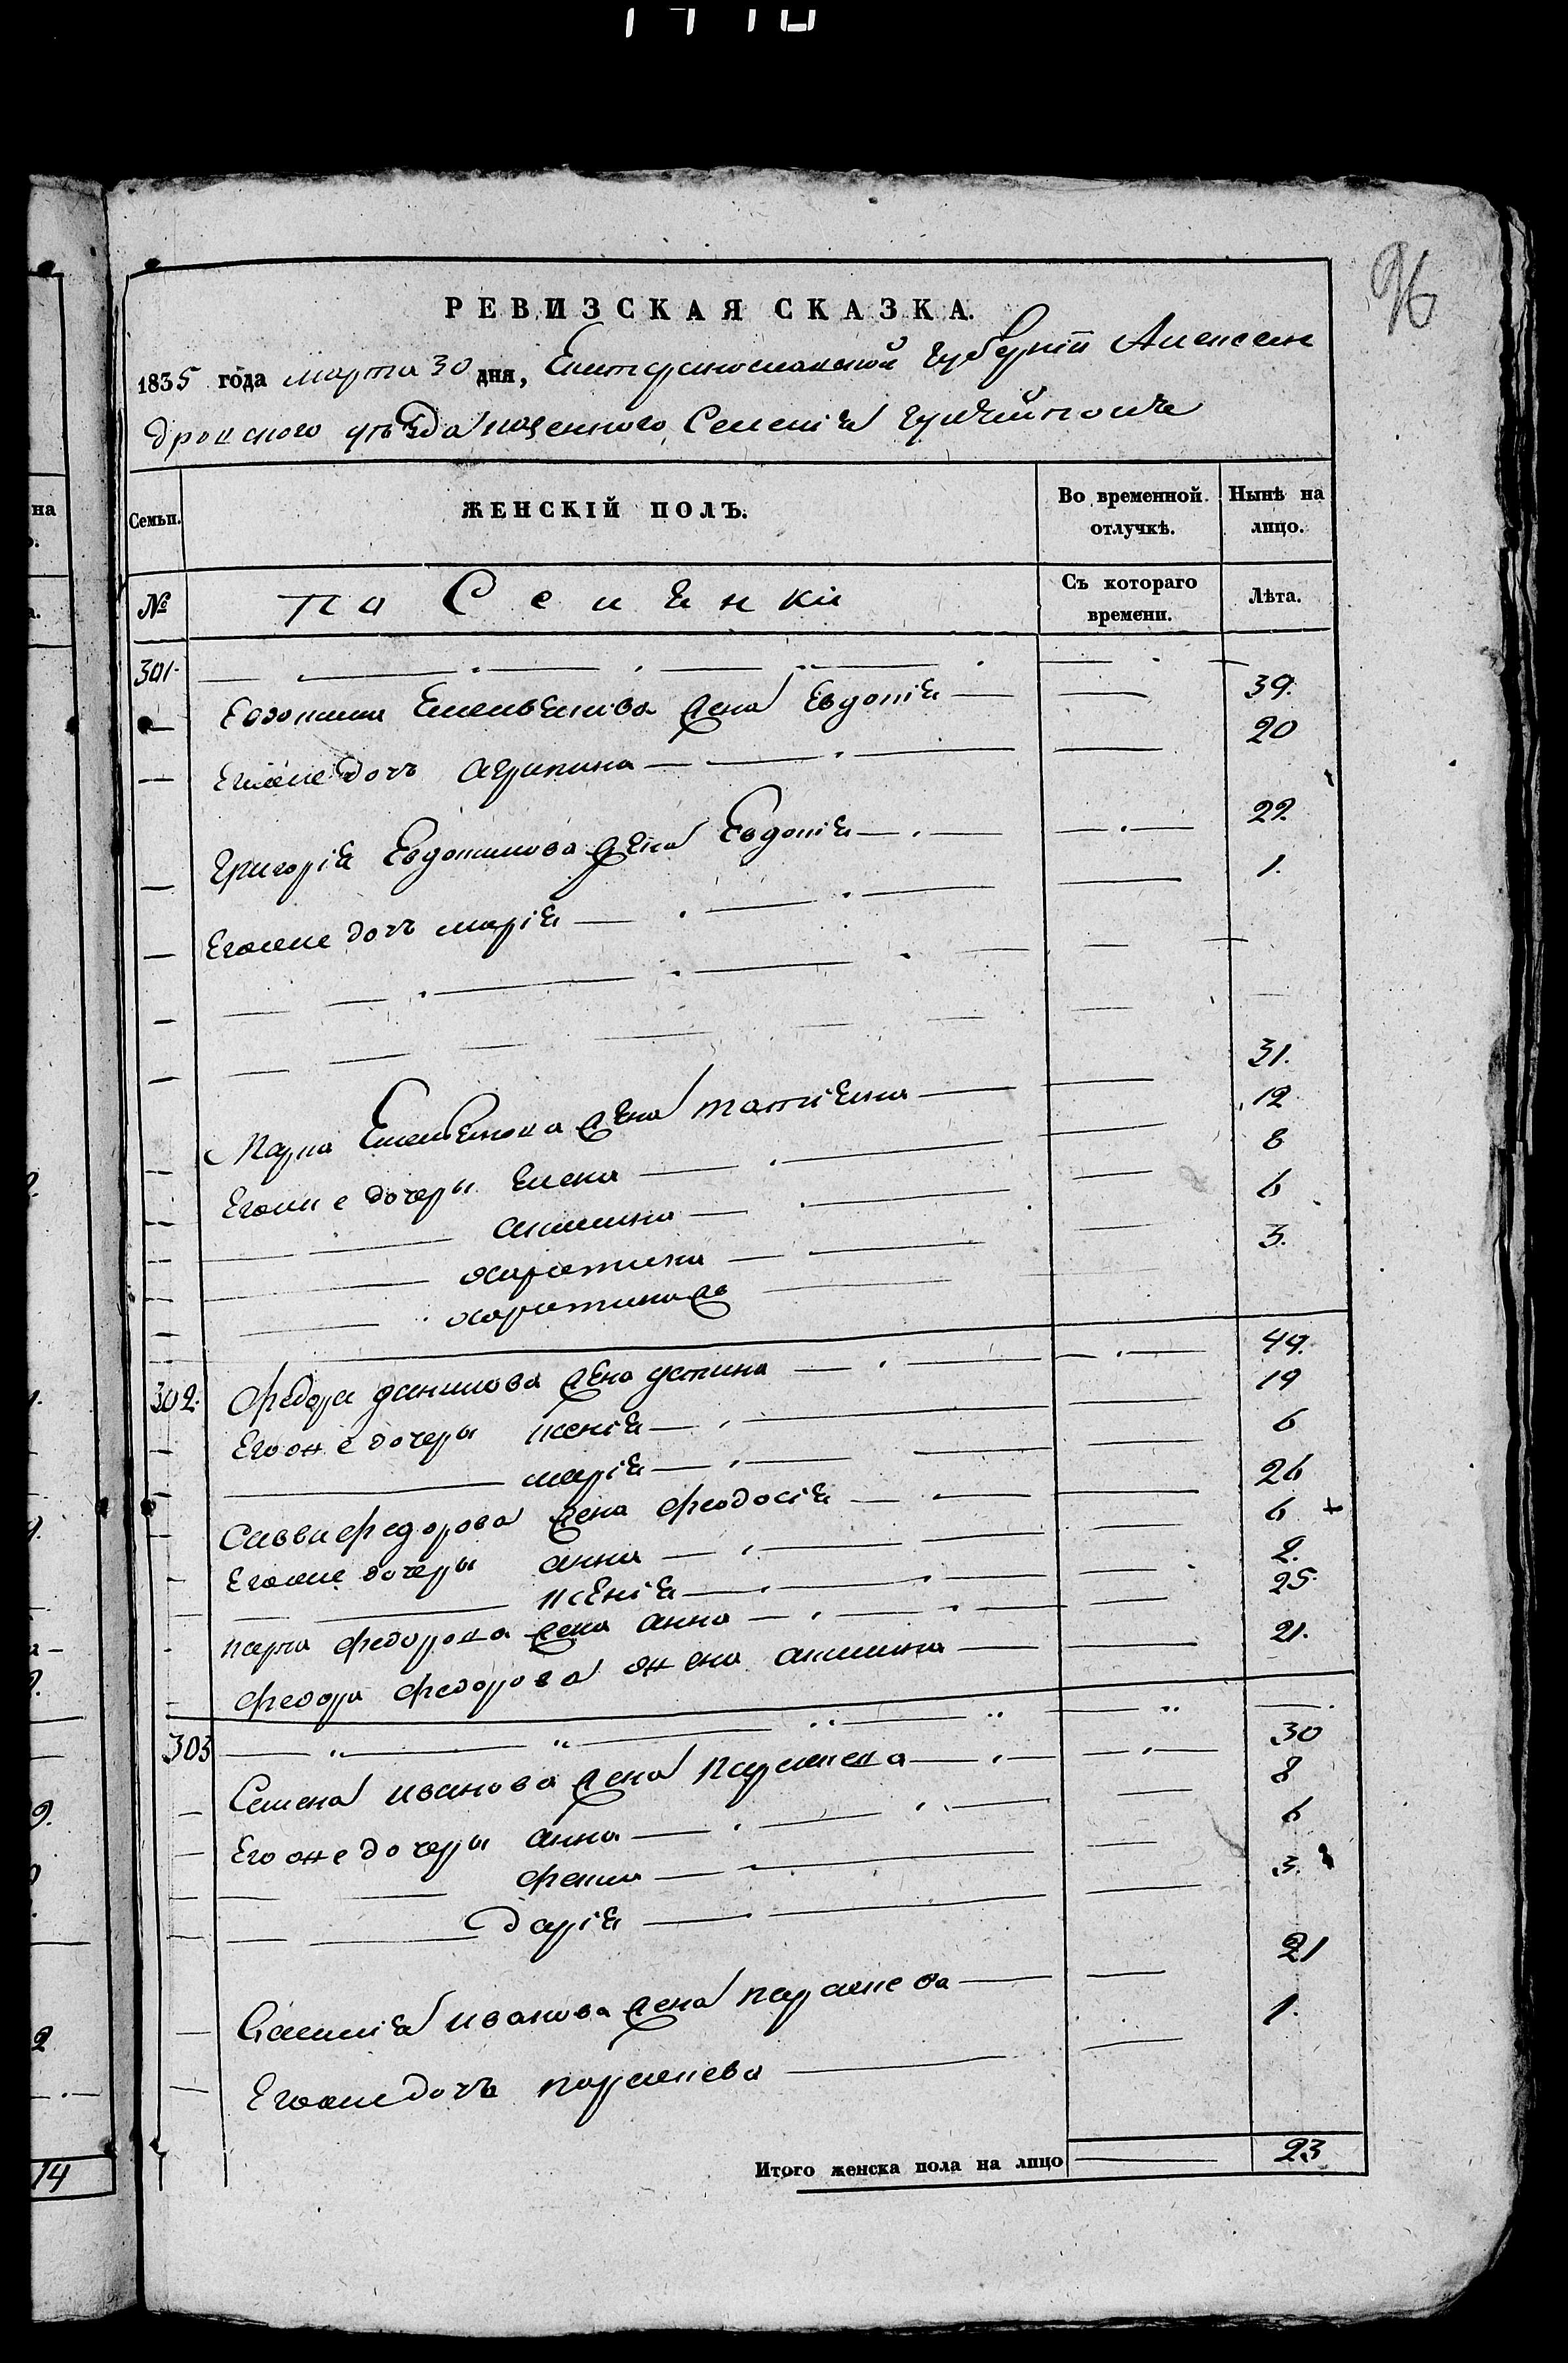 96
РЕВИЗСКАЯ СКАЗКА.
1835 года марта 30 дня, Екатеринославской губернiи Александровского уѣзда казенного Селенiя
Семьи.
ЖЕНСКIЙ ПОЛЪ.
Во временной отлучкѣ.
Нынѣ на лицо.
№
Съ котораго времени.
Лѣта.
301.
Евдокима Емельянова жена Евдокiя 39.
Егоже дочь Агрипина 20
Григорiя Евдокимова жена Евдокiя 22.
Егоже дочь марiя 1.
Карпа Емельянова жена татiяна 31.
Егоже дочеры Елена 12
акилина 8
харитина 6
харитинаж 3.
302. Федора данилова жена устина 49.
Егоже дочеры ксенiя 19
марiя 6
Саввы федорова жена феодосiя 26
Егоже дочеры анна 6 +
ксенiя 2.
карпа федорова жена анна 25.
федора федорова жена акилина 21.
303
Семена иванова жена параскева 30
Егоже дочеры анна 8
фекла 6
дарiя 3.
иванова жена параскева 21
Егоже дочь параскева 1.
Итого женска пола на лицо 23
14